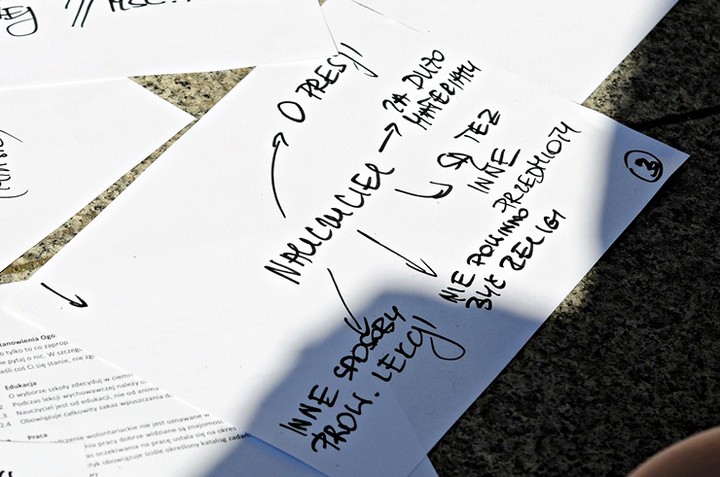 O PRESJI
NAUCZYCIEL
ZA DUŻO
MATERIAŁU
SĄ TEŻ
INNE
PRZEDMIOTY
NIE POWINNO
BYĆ RELIGI
INNE SPOSOBY
PROW. LEKCJI
3
tanowienia Ogó
o tylko to co zaprop
pytaj o nic. W szczeg
eśli coś Ci się stanie, nie zg
Edukacja
O wyborze szkoły zdecyduj w ciemn
2 Podczas lekcji wychowawczej należy o
.3 Nauczyciel jest od edukacji, nie od anima
2.4 Obowiązuje całkowity zakaz wpuszczania d
Praca
czenie wolontariackie nie jest uznawane w
nia pracy dobrze widziane są znajomośc
as oczekiwania na pracę ustala się na okres
tyk obowiązuje ściśle określony katalog zadań